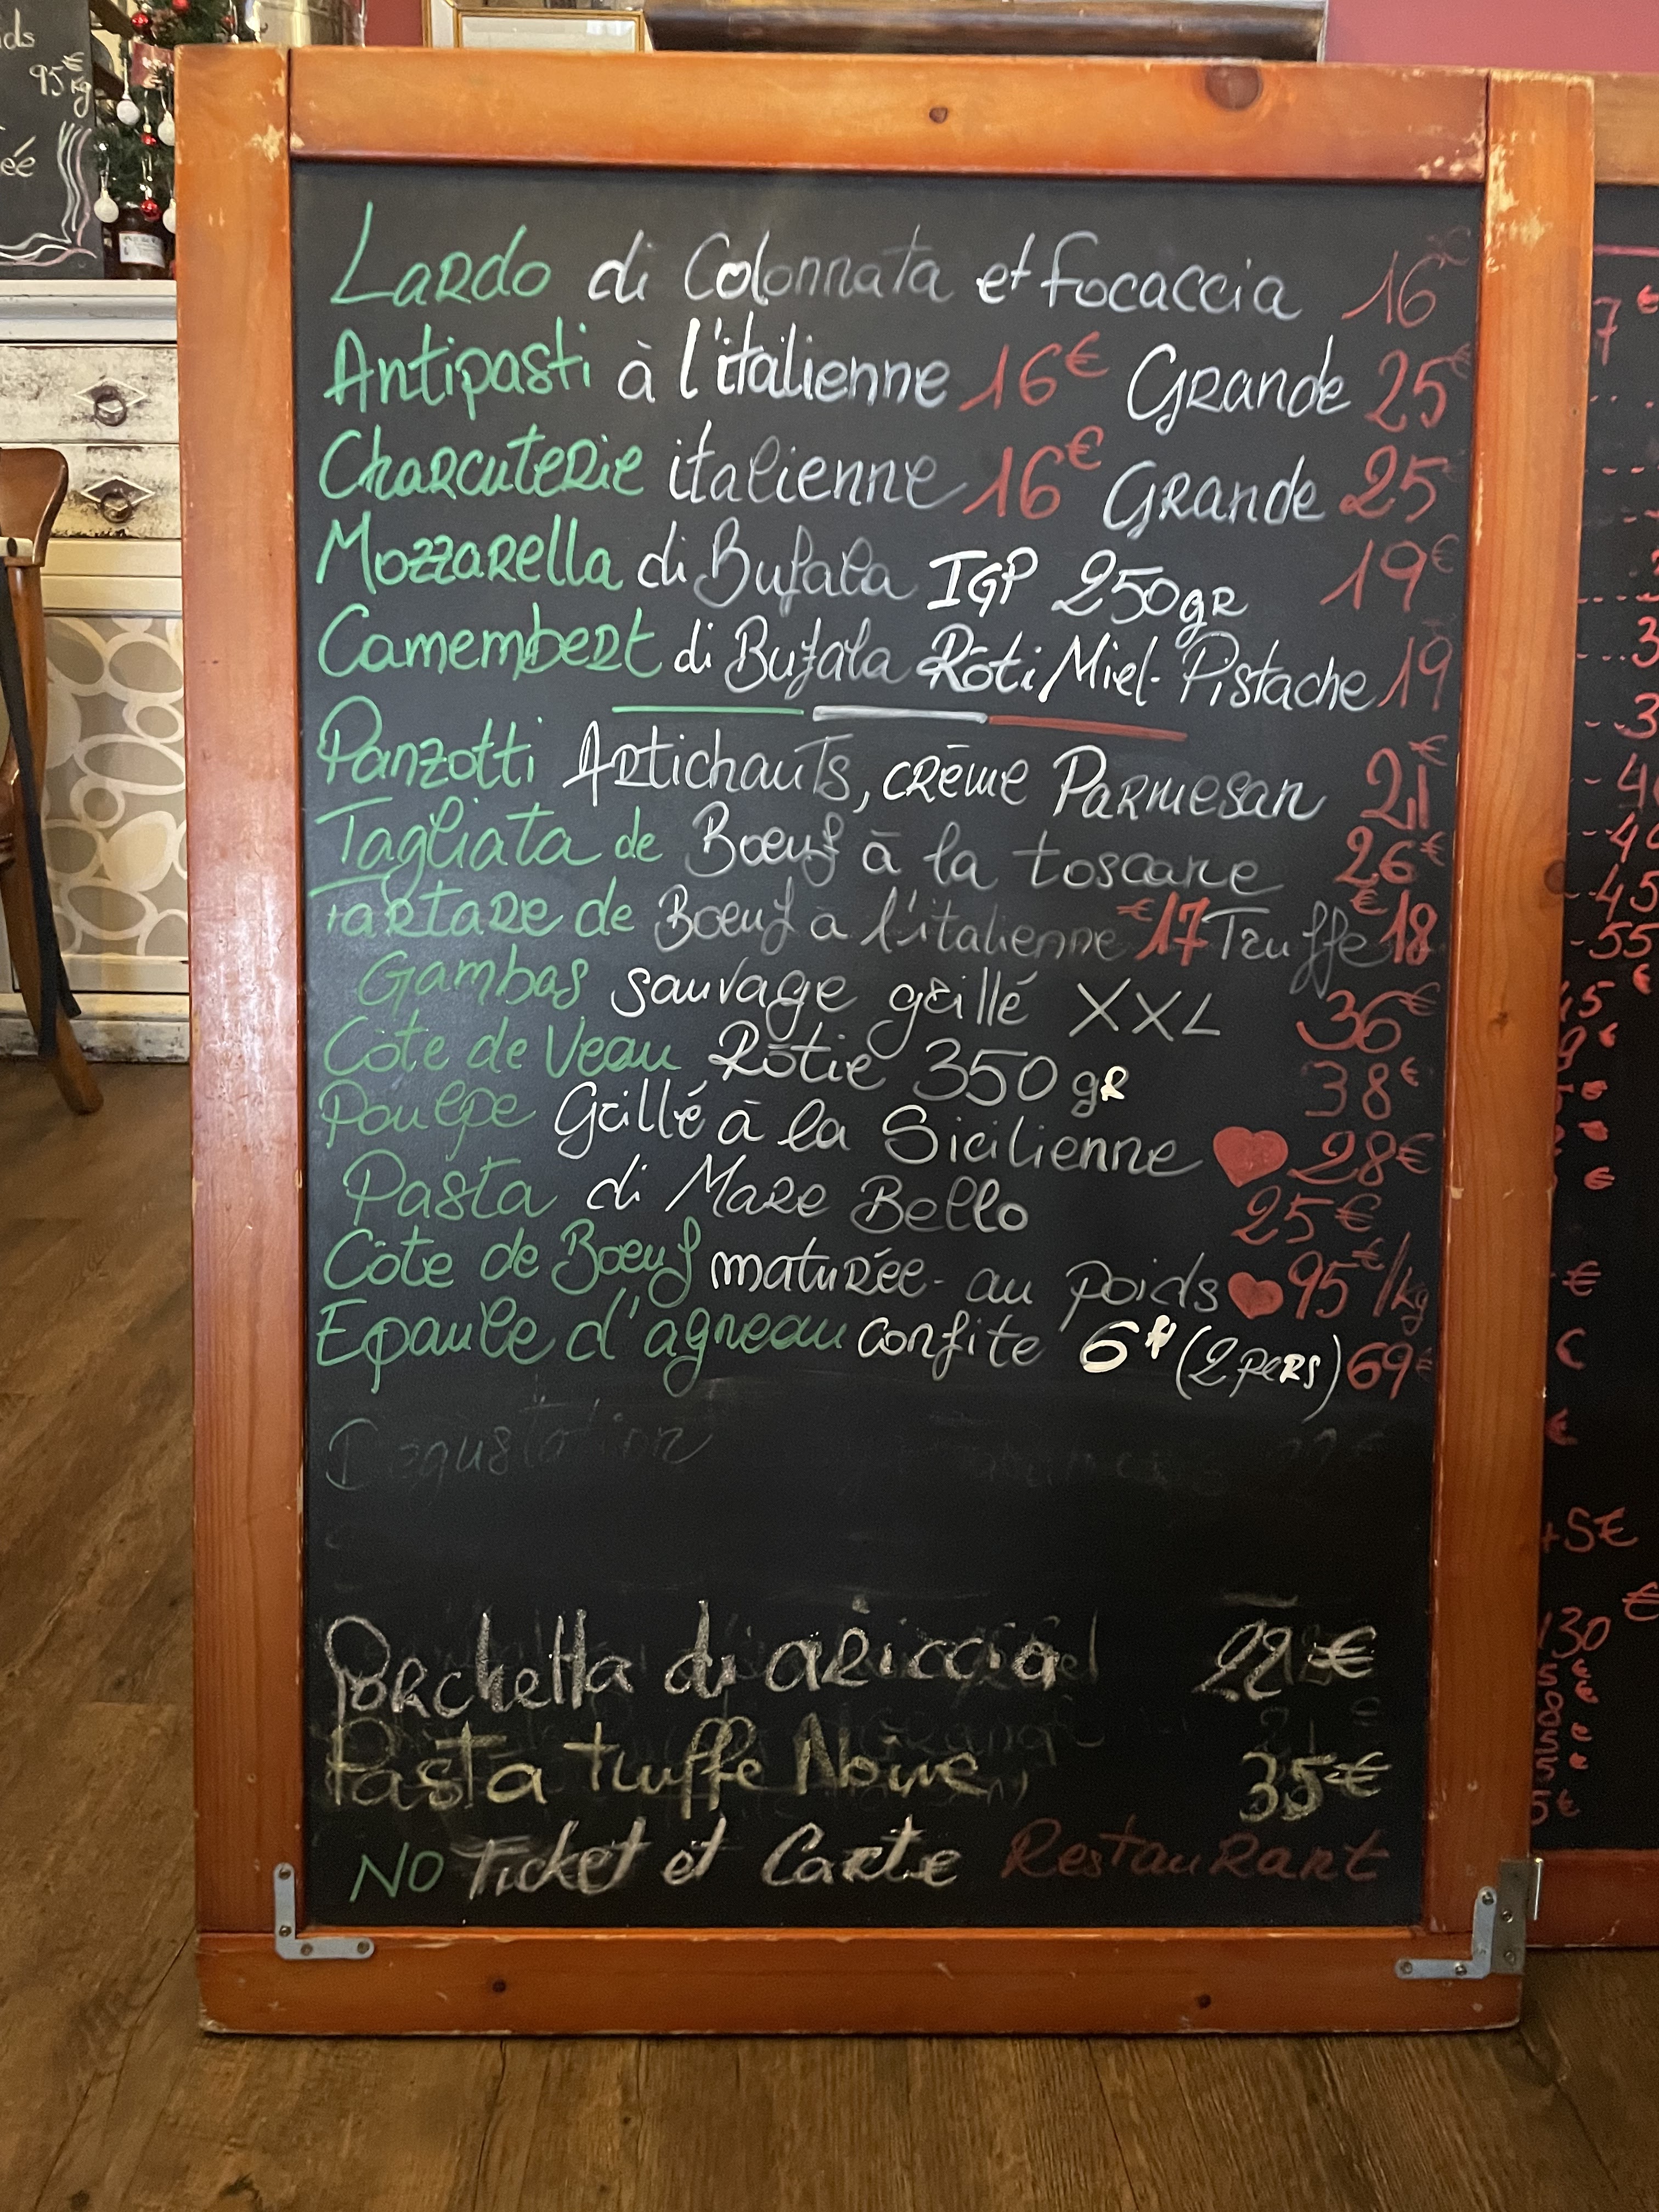 Lardo di Colonnata et focaccia 16€
Antipasti à l'italienne 16€ Grande 25€
Charcuterie italienne 16€ Grande 25
Mozzarella di Bufala IGP 250gr 19€
Camembert di Bufala Rôti Miel-Pistache 19
Panzotti Artichauts, crème Parmesan 21€
Tagliata de Boeuf à la toscane 26€
Tartare de Boeuf à l'italienne €17 Truffe €18
Gambas sauvage grillé XXL 36€
Côte de Veau Rôtie 350gr 38€
Poulpe Grillé à la Sicilienne 28€
Pasta di Mare Bello 25€
Côte de Boeuf maturée - au poids 95€/kg
Epaule d'agneau confite 6H (2 pers) 69€
Degustation
Porchetta di ariccia 22€
Pasta truffe Noire 35€
NO Ticket et Carte Restaurant
95€
kg
7€
+5€
130